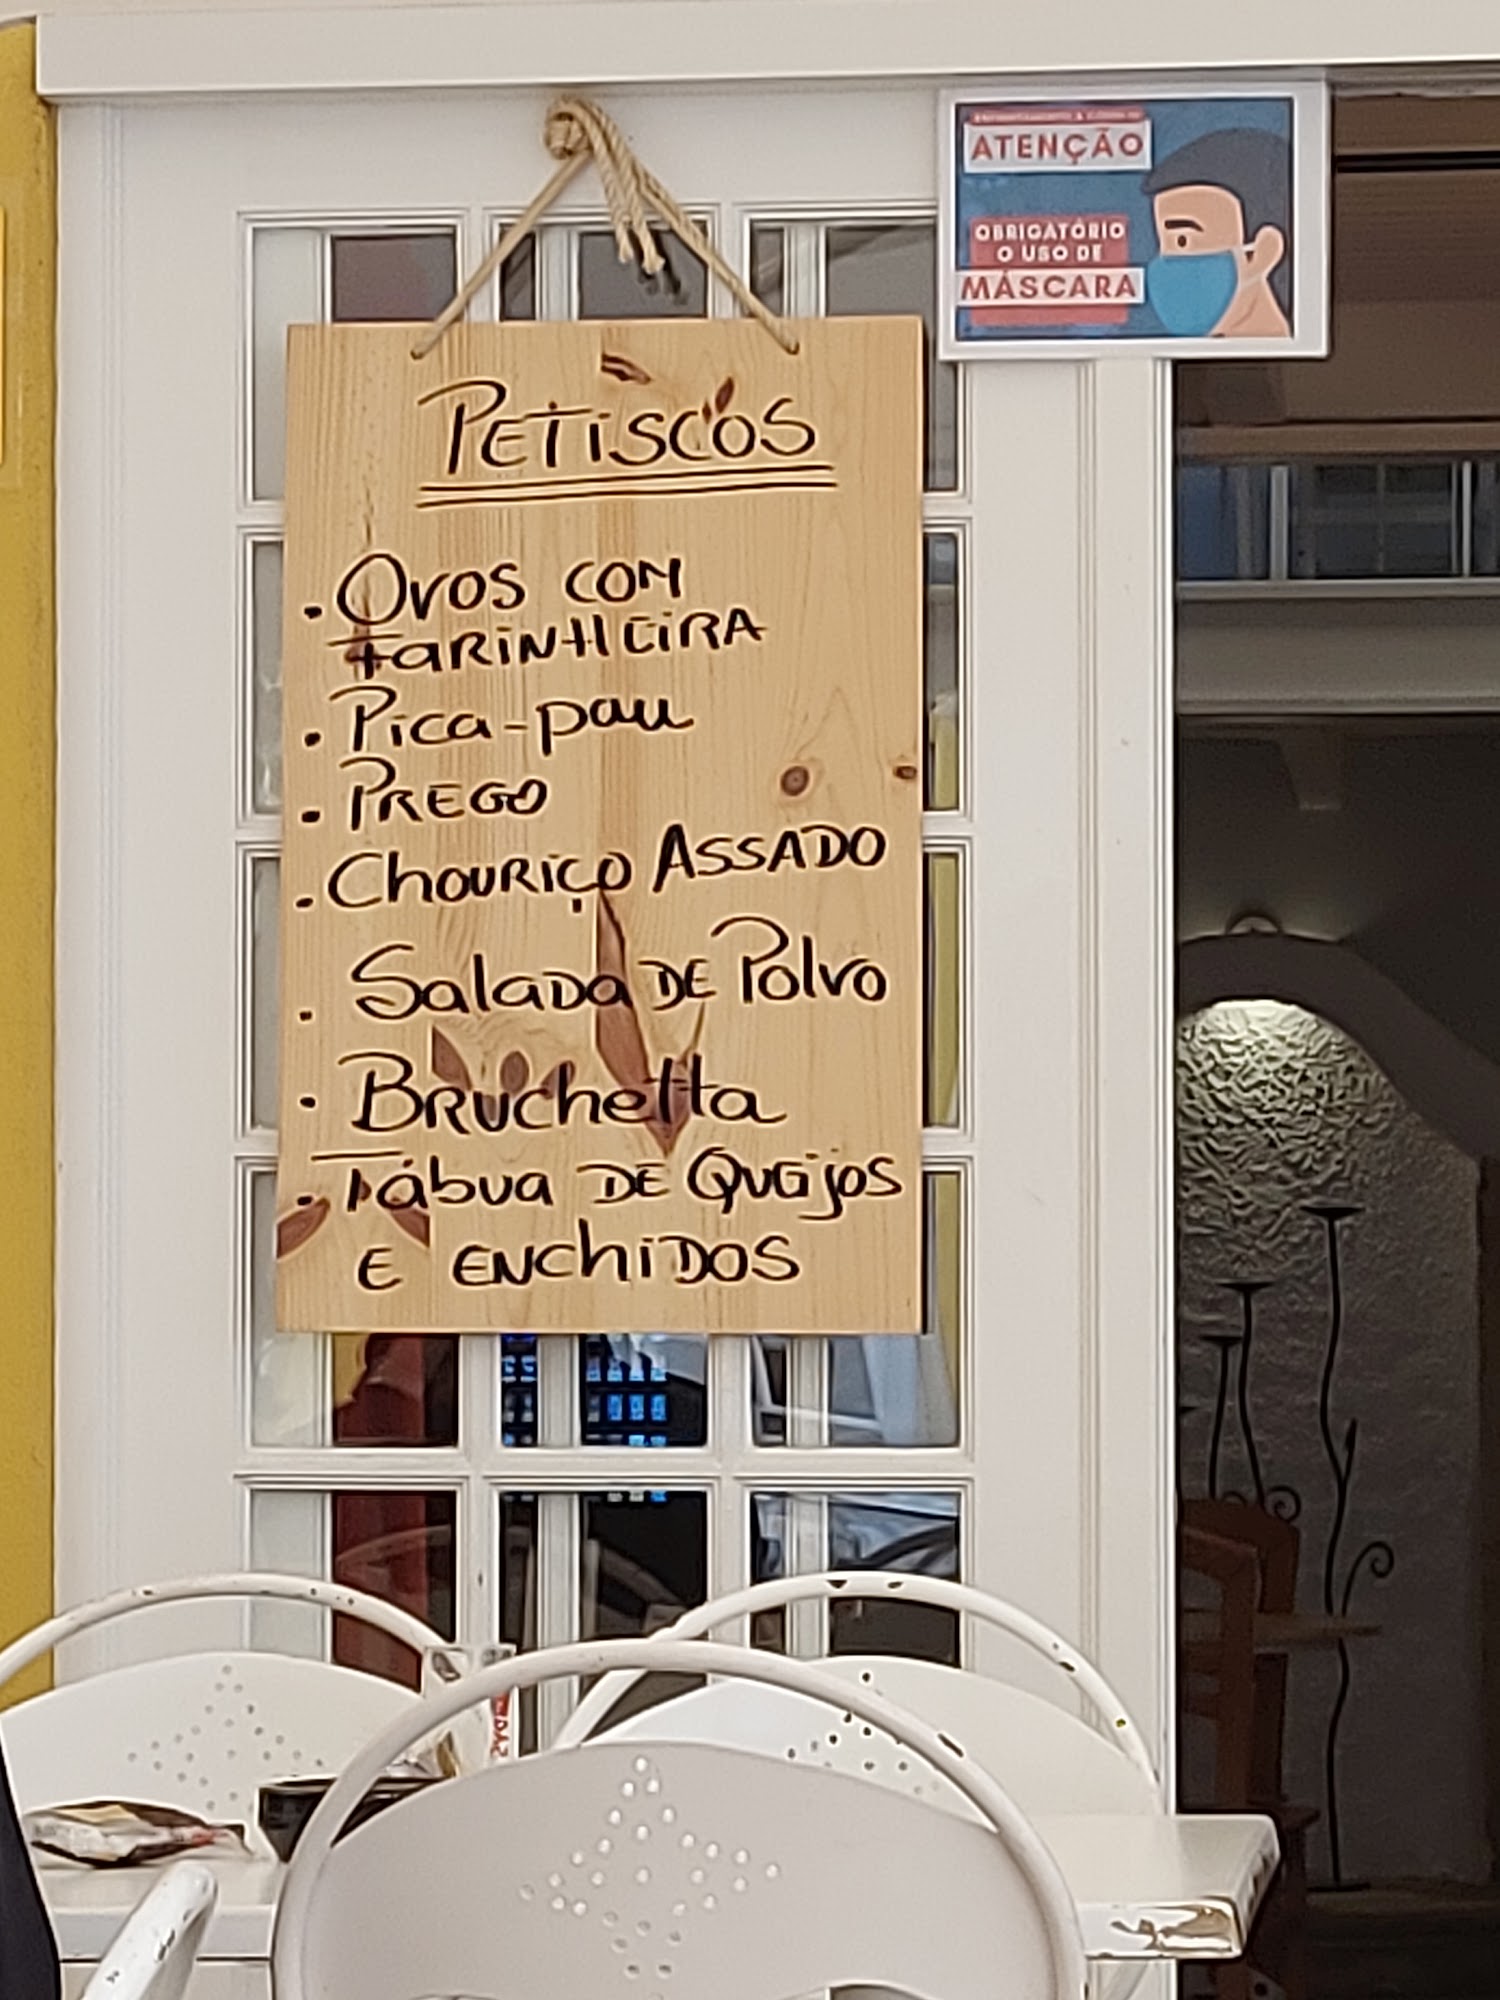 PETISCOS
. OVOS COM
FARINHEIRA
. Pica-pau
. PREGO
. CHOURIÇO ASSADO
. Salada DE Polvo
. BRUchetta
. Tábua DE QUEijos
E ENChiDOS
ATENÇÃO
OBRIGATÓRIO
O USO DE
MÁSCARA